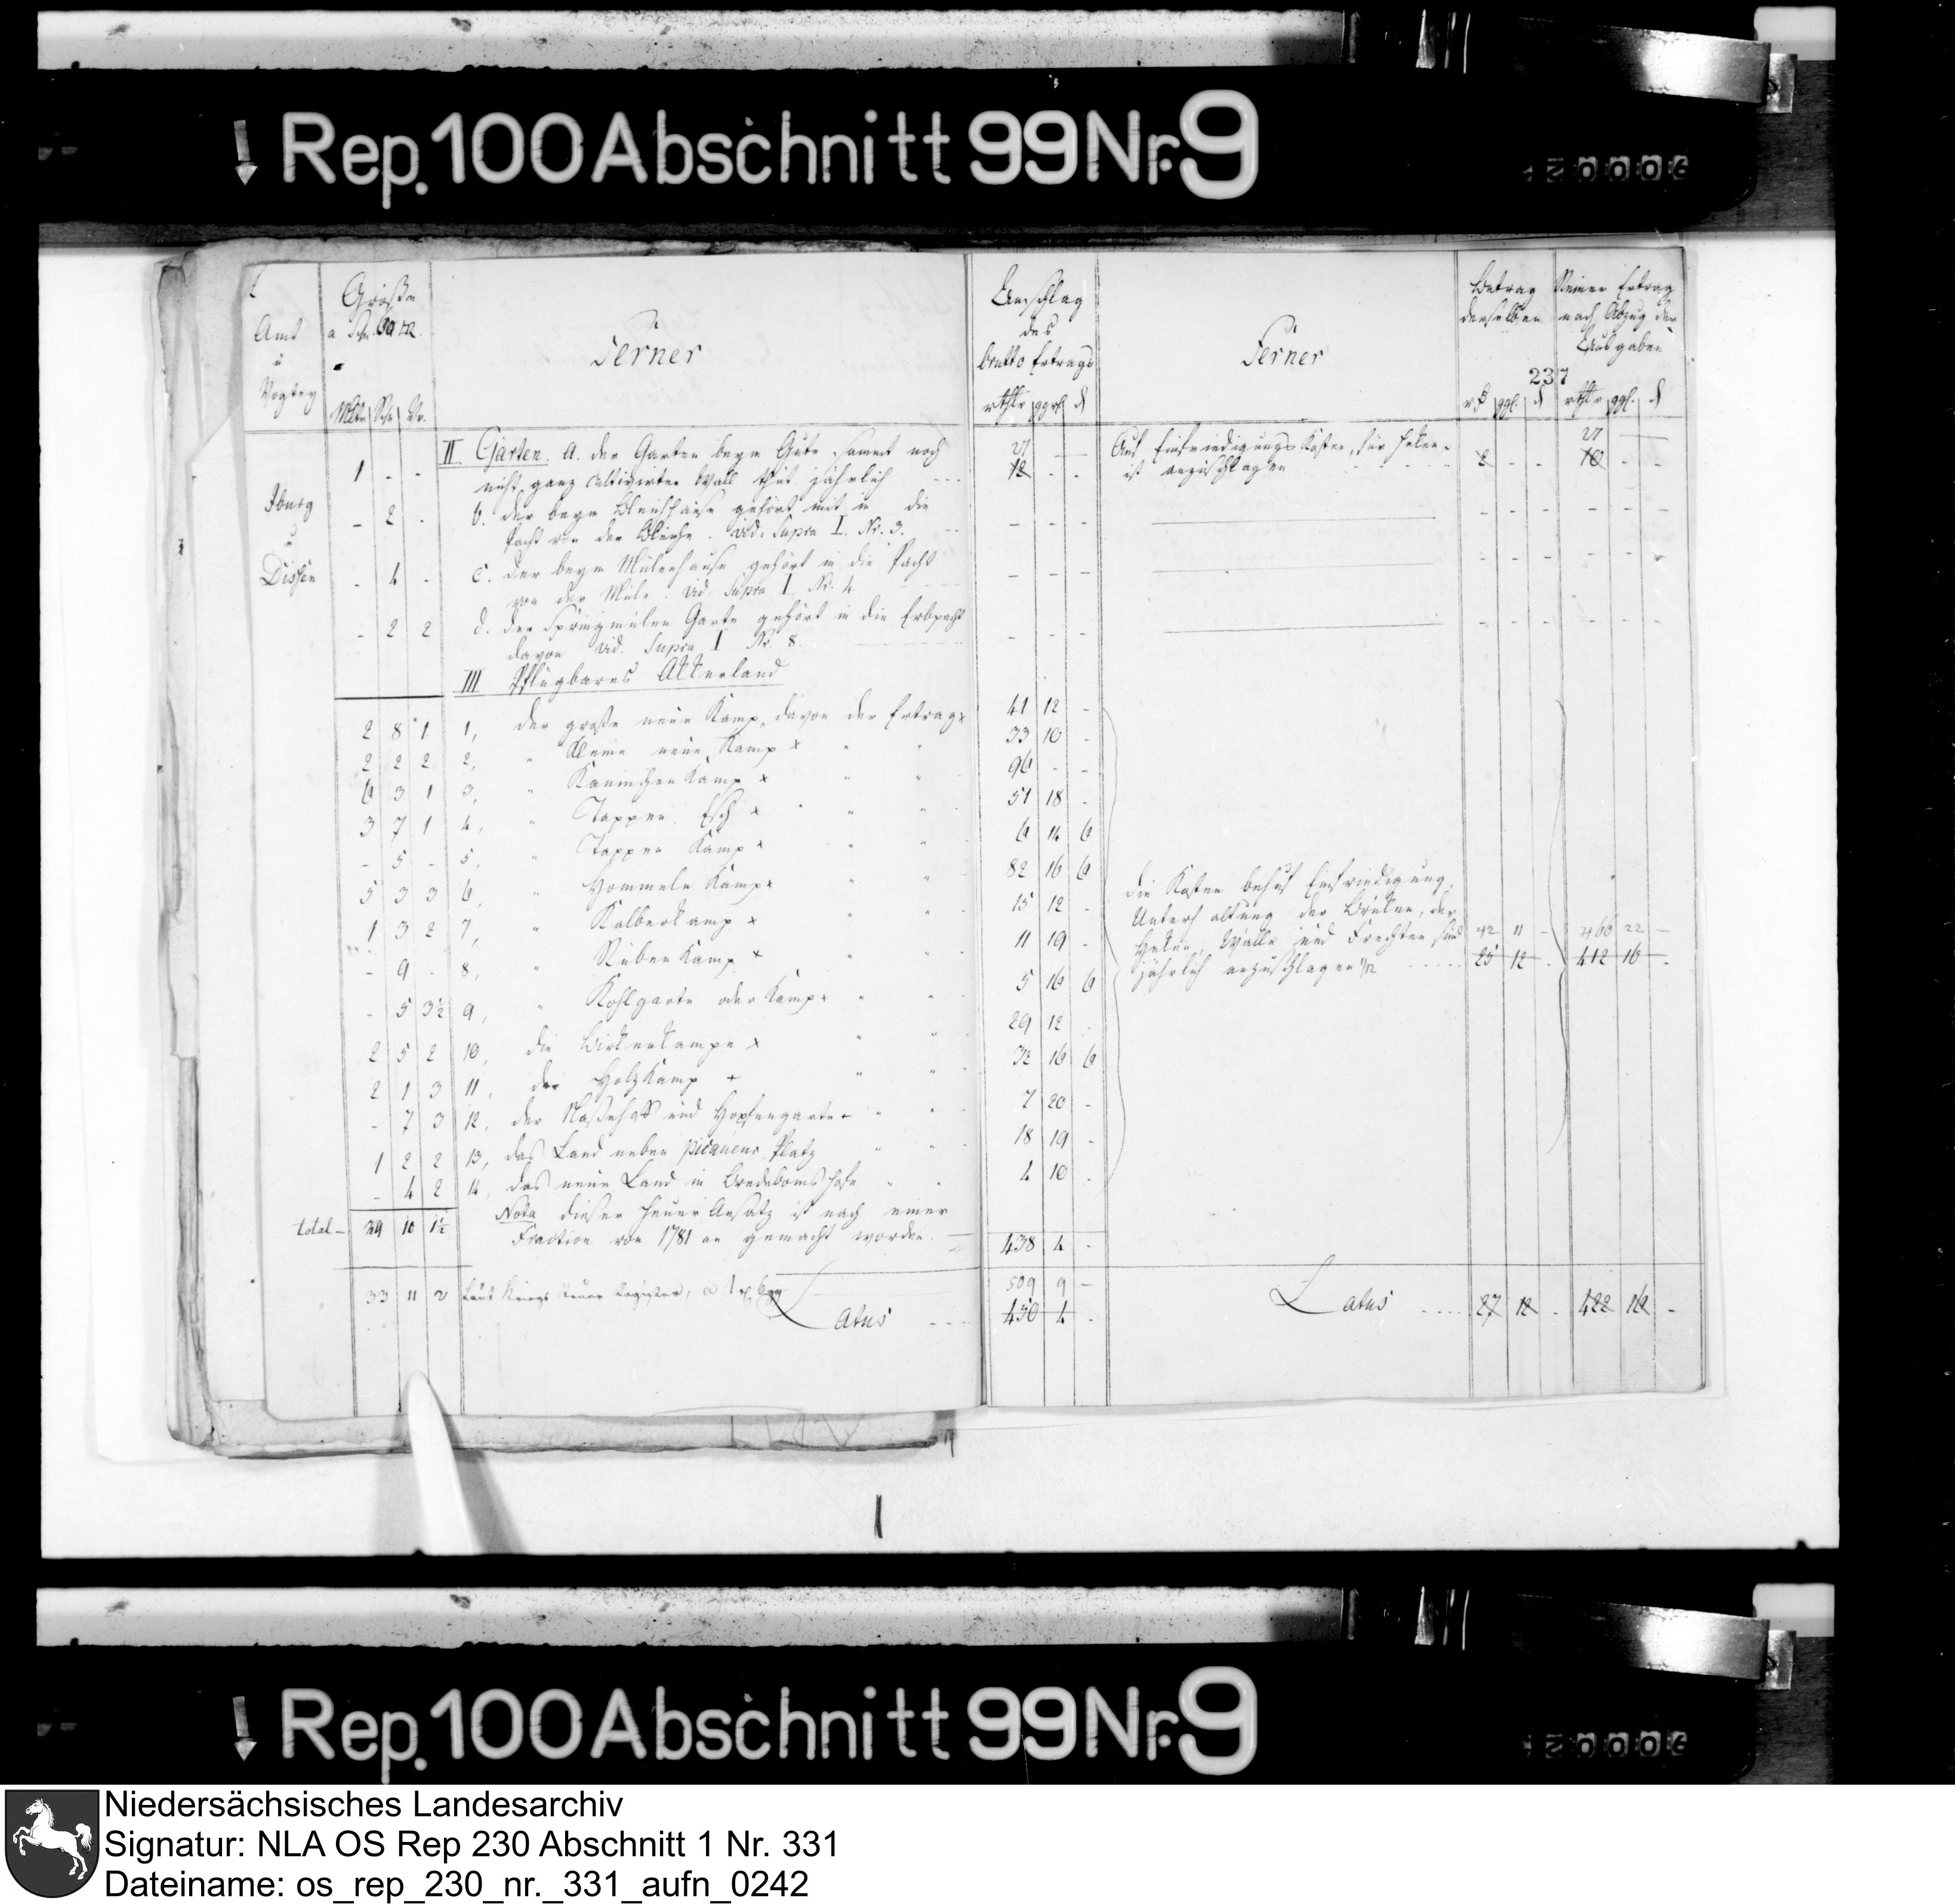 Rep. 100 Abschnitt 99 Nr. 9
237
Amt
u
Vogtey
Größe
Mltr Schf Vr.
Ferner
Anschlag
des
brutto Ertrags
rthlr ggrl d
Ferner
Betrag
derselben
Reiner Ertrag
nach Abzug der
Ausgaben
rthlr ggl. d
Iburg
u
Dissen
1 - - II Gärten. A. der Garten beym Gute sammt noch 21 - -
nicht ganz cultivirten Wall thut jährlich 12 - -
Auf Einfriedigungs Kosten, für Heken
ist anzuschlagen 2 - - 21 10 - -
- 2 - b. der beym Bleichhause gehört mit in die
Pacht von der Bleiche. vid. supra I. Nr. 3. - - -
- 4 - c. der beym Mülenhause gehört in die Pacht
von der Müle. vid. supra I. Nr. 4 - - -
- 2 2 d. der Springmülen Garte gehört in die Erbpacht
davon vid. supra I Nr. 8. - - -
III Pflügbares Akkerland
2 8 1 1, der große neue Kamp, davon der Ertrag x 41 12 -
2 2 2 2, " kleine neue Kamp x " " 33 10 -
6 3 1 3, " Kaninchen Kamp x " " 96 - -
3 7 1 4, " Tappen Esch x " " 51 18 -
- 5 - 5, " Tappen Kamp x " " 6 14 6
5 3 3 6, " Hommeln Kamp x " " 82 16 6
1 3 2 7, " Kalberkamp x " " 15 12 -
- 9 - 8, " Rüben Kamp x " " 11 19 -
- 5 3½ 9, " Kohlgarte oder Kamp x " " 5 16 6
2 5 2 10, die Birkenkampe x " " 29 12 -
2 1 3 11, der Holz Kamp + " " 32 16 6
- 7 3 12, der und Hopfengarte " " 7 20 -
1 2 2 13, das Land neben Platz " " 18 19 -
- 4 2 14, das neue Land in Bredeboms Hofe " " 4 10 -
die Kosten behuf Einfriedigung,
Unterhaltung der Brüken, der
Heken, Wälle und Frechten, sind 42 11 - 466 22 -
jährlich anzuschlagen 1/12 25 12 - 412 16 -
Nota dieser Heuer Ansatz ist nach einer
total - 39 10 1½ Fraction von 1781 an gemacht worden. 438 4 -
33 11 2 laut Register, 509 9 -
Latus 450 4 -
Latus 27 12 - 422 16 -
Rep. 100 Abschnitt 99 Nr. 9
Niedersächsisches Landesarchiv
Signatur: NLA OS Rep 230 Abschnitt 1 Nr. 331
Dateiname: os_rep_230_nr._331_aufn_0242